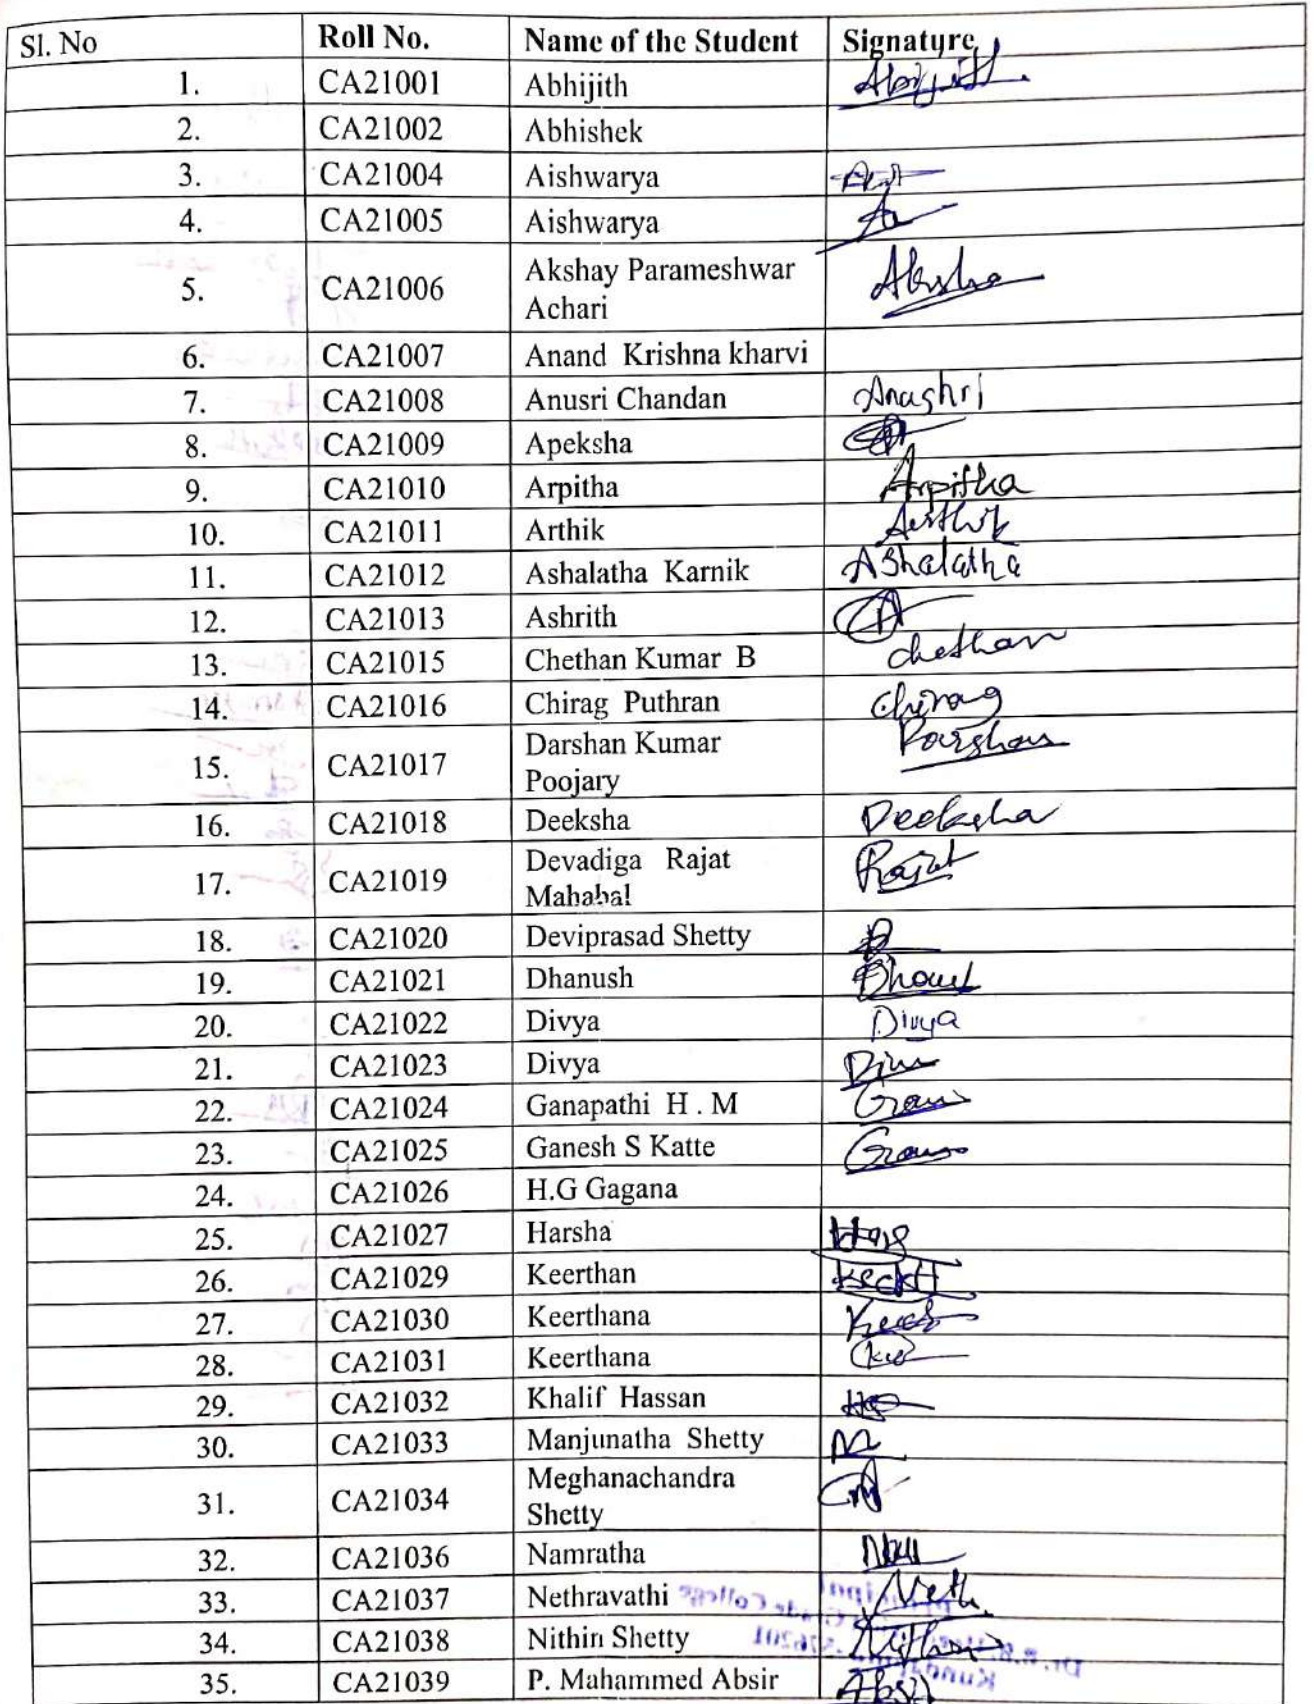 Sl. No Roll No. Name of the Student Signature
1. CA21001 Abhijith Abhijith
2. CA21002 Abhishek
3. CA21004 Aishwarya
4. CA21005 Aishwarya
5. CA21006 Akshay Parameshwar
Achari
6. CA21007 Anand Krishna kharvi
7. CA21008 Anusri Chandan Anushri
8. CA21009 Apeksha
9. CA21010 Arpitha Arpitha
10. CA21011 Arthik Arthik
11. CA21012 Ashalatha Karnik AShalatha
12. CA21013 Ashrith
13. CA21015 Chethan Kumar B chethan
14. CA21016 Chirag Puthran Chirag
15. CA21017 Darshan Kumar Darshan
Poojary
16. CA21018 Deeksha Deeksha
17. CA21019 Devadiga Rajat Rajat
Mahabal
18. CA21020 Deviprasad Shetty
19. CA21021 Dhanush
20. CA21022 Divya Divya
21. CA21023 Divya
22. CA21024 Ganapathi H . M
23. CA21025 Ganesh S Katte
24. CA21026 H.G Gagana
25. CA21027 Harsha
26. CA21029 Keerthan
27. CA21030 Keerthana
28. CA21031 Keerthana
29. CA21032 Khalif Hassan
30. CA21033 Manjunatha Shetty
31. CA21034 Meghanachandra
Shetty
32. CA21036 Namratha
33. CA21037 Nethravathi Neth
34. CA21038 Nithin Shetty Nithin
35. CA21039 P. Mahammed Absir Absir